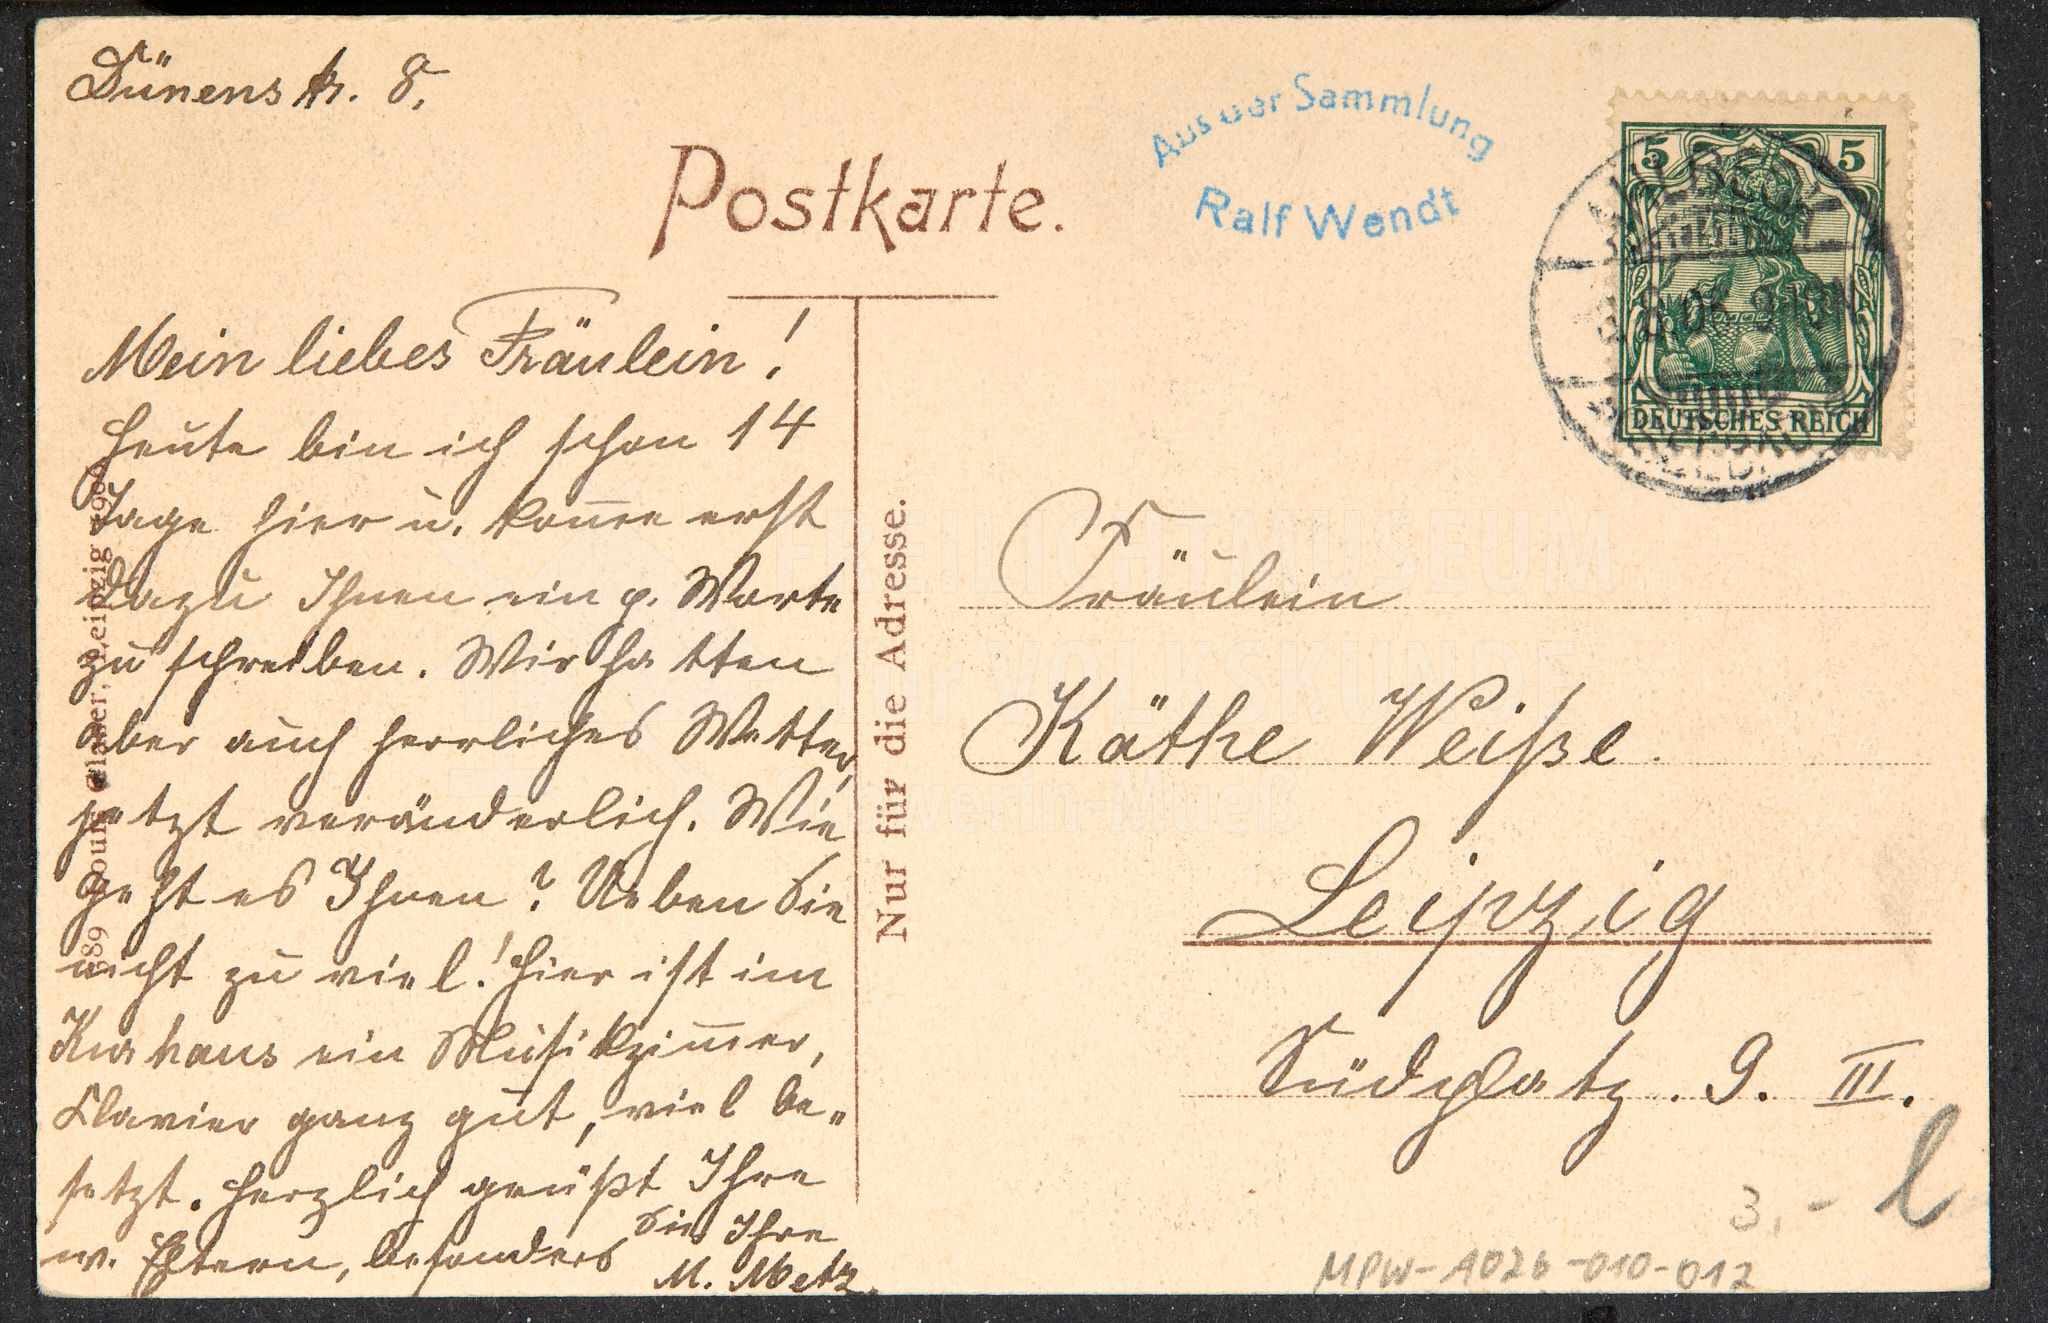 Dünenstr. 8.
Postkarte.
Aus der Sammlung
Ralf Wendt
5 5
DEUTSCHES REICH
Mein liebes Fräulein!
Heute bin ich schon 14
Tage hier u. komme erst
dazu Ihnen ein p. Worte
zu schreiben. Wir hatten
aber auch herrliches Wetter,
jetzt veränderlich. Wie
geht es Ihnen? Ueben Sie
nicht zu viel! Hier ist im
Kurhaus ein Musikzimmer,
Klavier ganz gut, viel be-
setzt. Herzlich grüßt Ihre
w. Eltern, besonders Sie Ihre
M. Metz.
589 Louis Glaser, Leipzig
Nur für die Adresse.
Fräulein
Käthe Weiße.
Leipzig
Südplatz. 9. III.
3.- l
MPW-1026-010-012
FREILICHTMUSEUM
für VOLKSKUNDE
Schwerin-Mueß